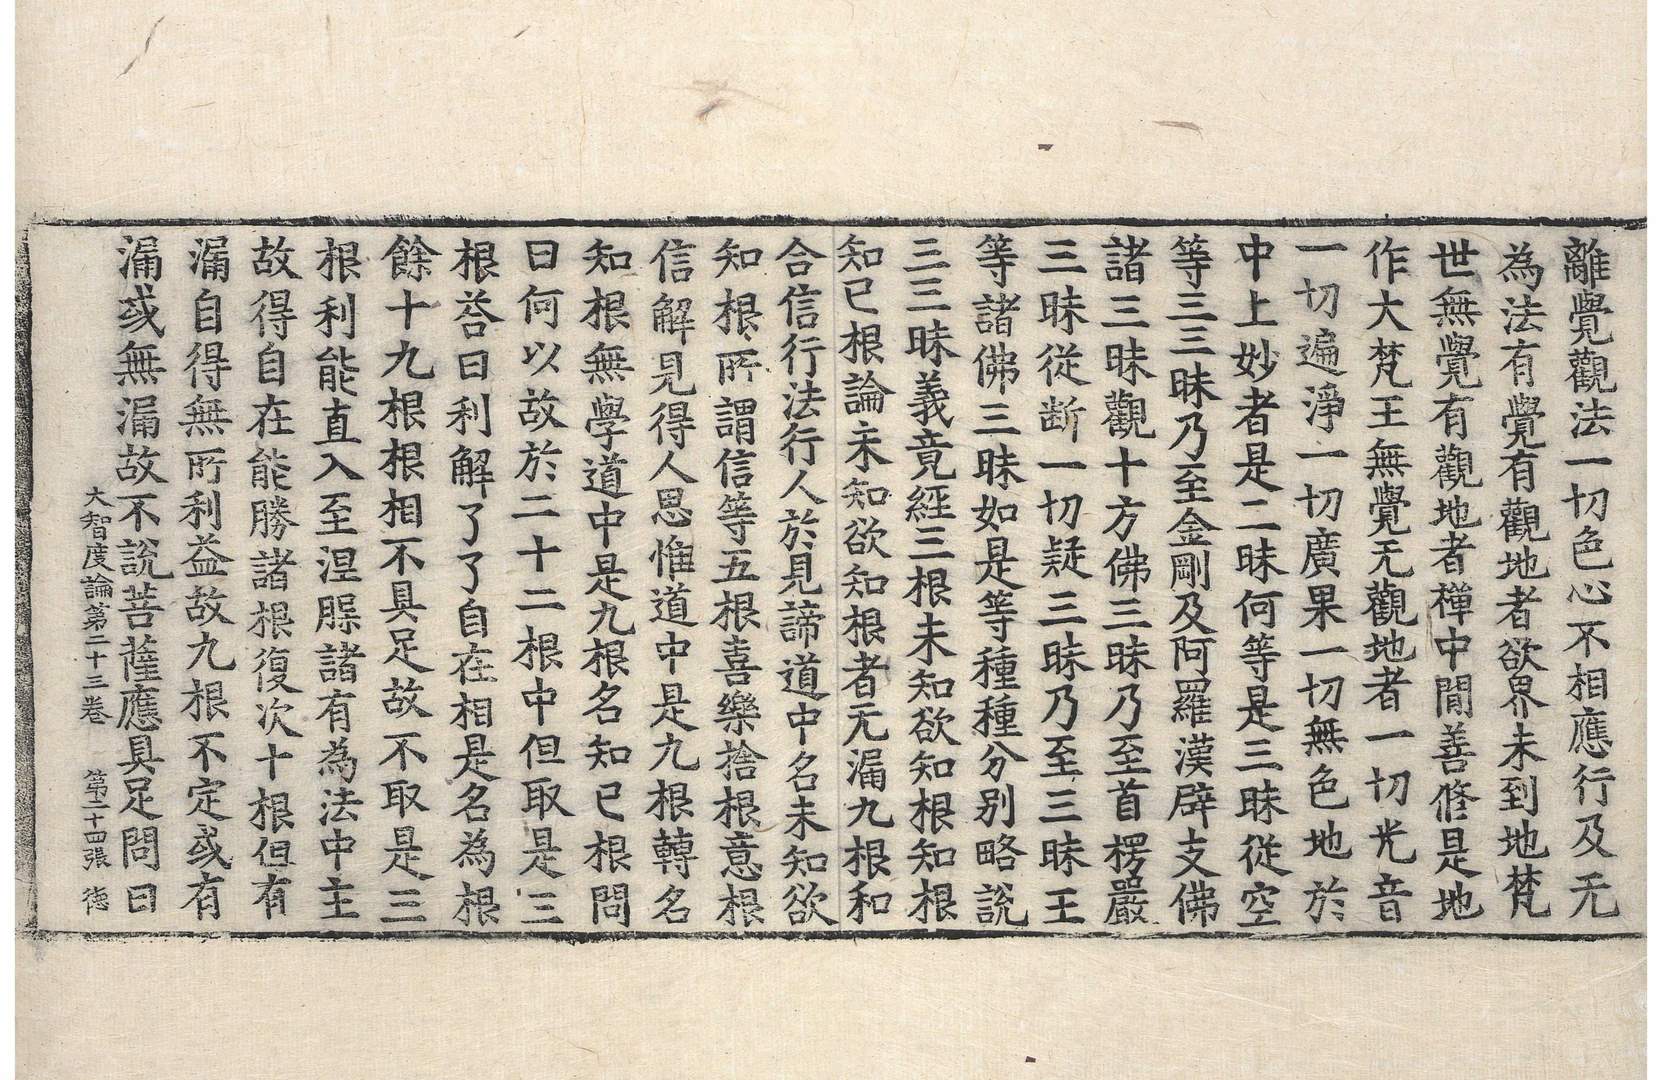 離覺觀法一切色心不相應行及无
為法有覺有觀地者欲界未到地梵
世無覺有觀地者禪中閒善修是地
作大梵王無覺无觀地者一切光音
一切遍淨一切廣果一切無色地於
中上妙者是二昧何等是三昧從空
等三三昧乃至金剛及阿羅漢辟支佛
諸三昧觀十方佛三昧乃至首楞嚴
三昧從断一切疑三昧乃至三昧王
等諸佛三昧如是等種種分別略說
三三昧義竟經三根未知欲知根知根
知已根論未知欲知根者无漏九根和
合信行法行人於見諦道中名未知欲
知根所謂信等五根喜樂捨根意根
信解見得人思惟道中是九根轉名
知根無學道中是九根名知已根問
曰何以故於二十二根中但取是三
根荅曰利解了了自在相是名為根
餘十九根根相不具足故不取是三
根利能直入至涅槃諸有為法中主
故得自在能勝諸根復次十根但有
漏自得無所利益故九根不定或有
漏或無漏故不說菩薩應具足問曰
大智度論第二十三卷 第二十四張 德